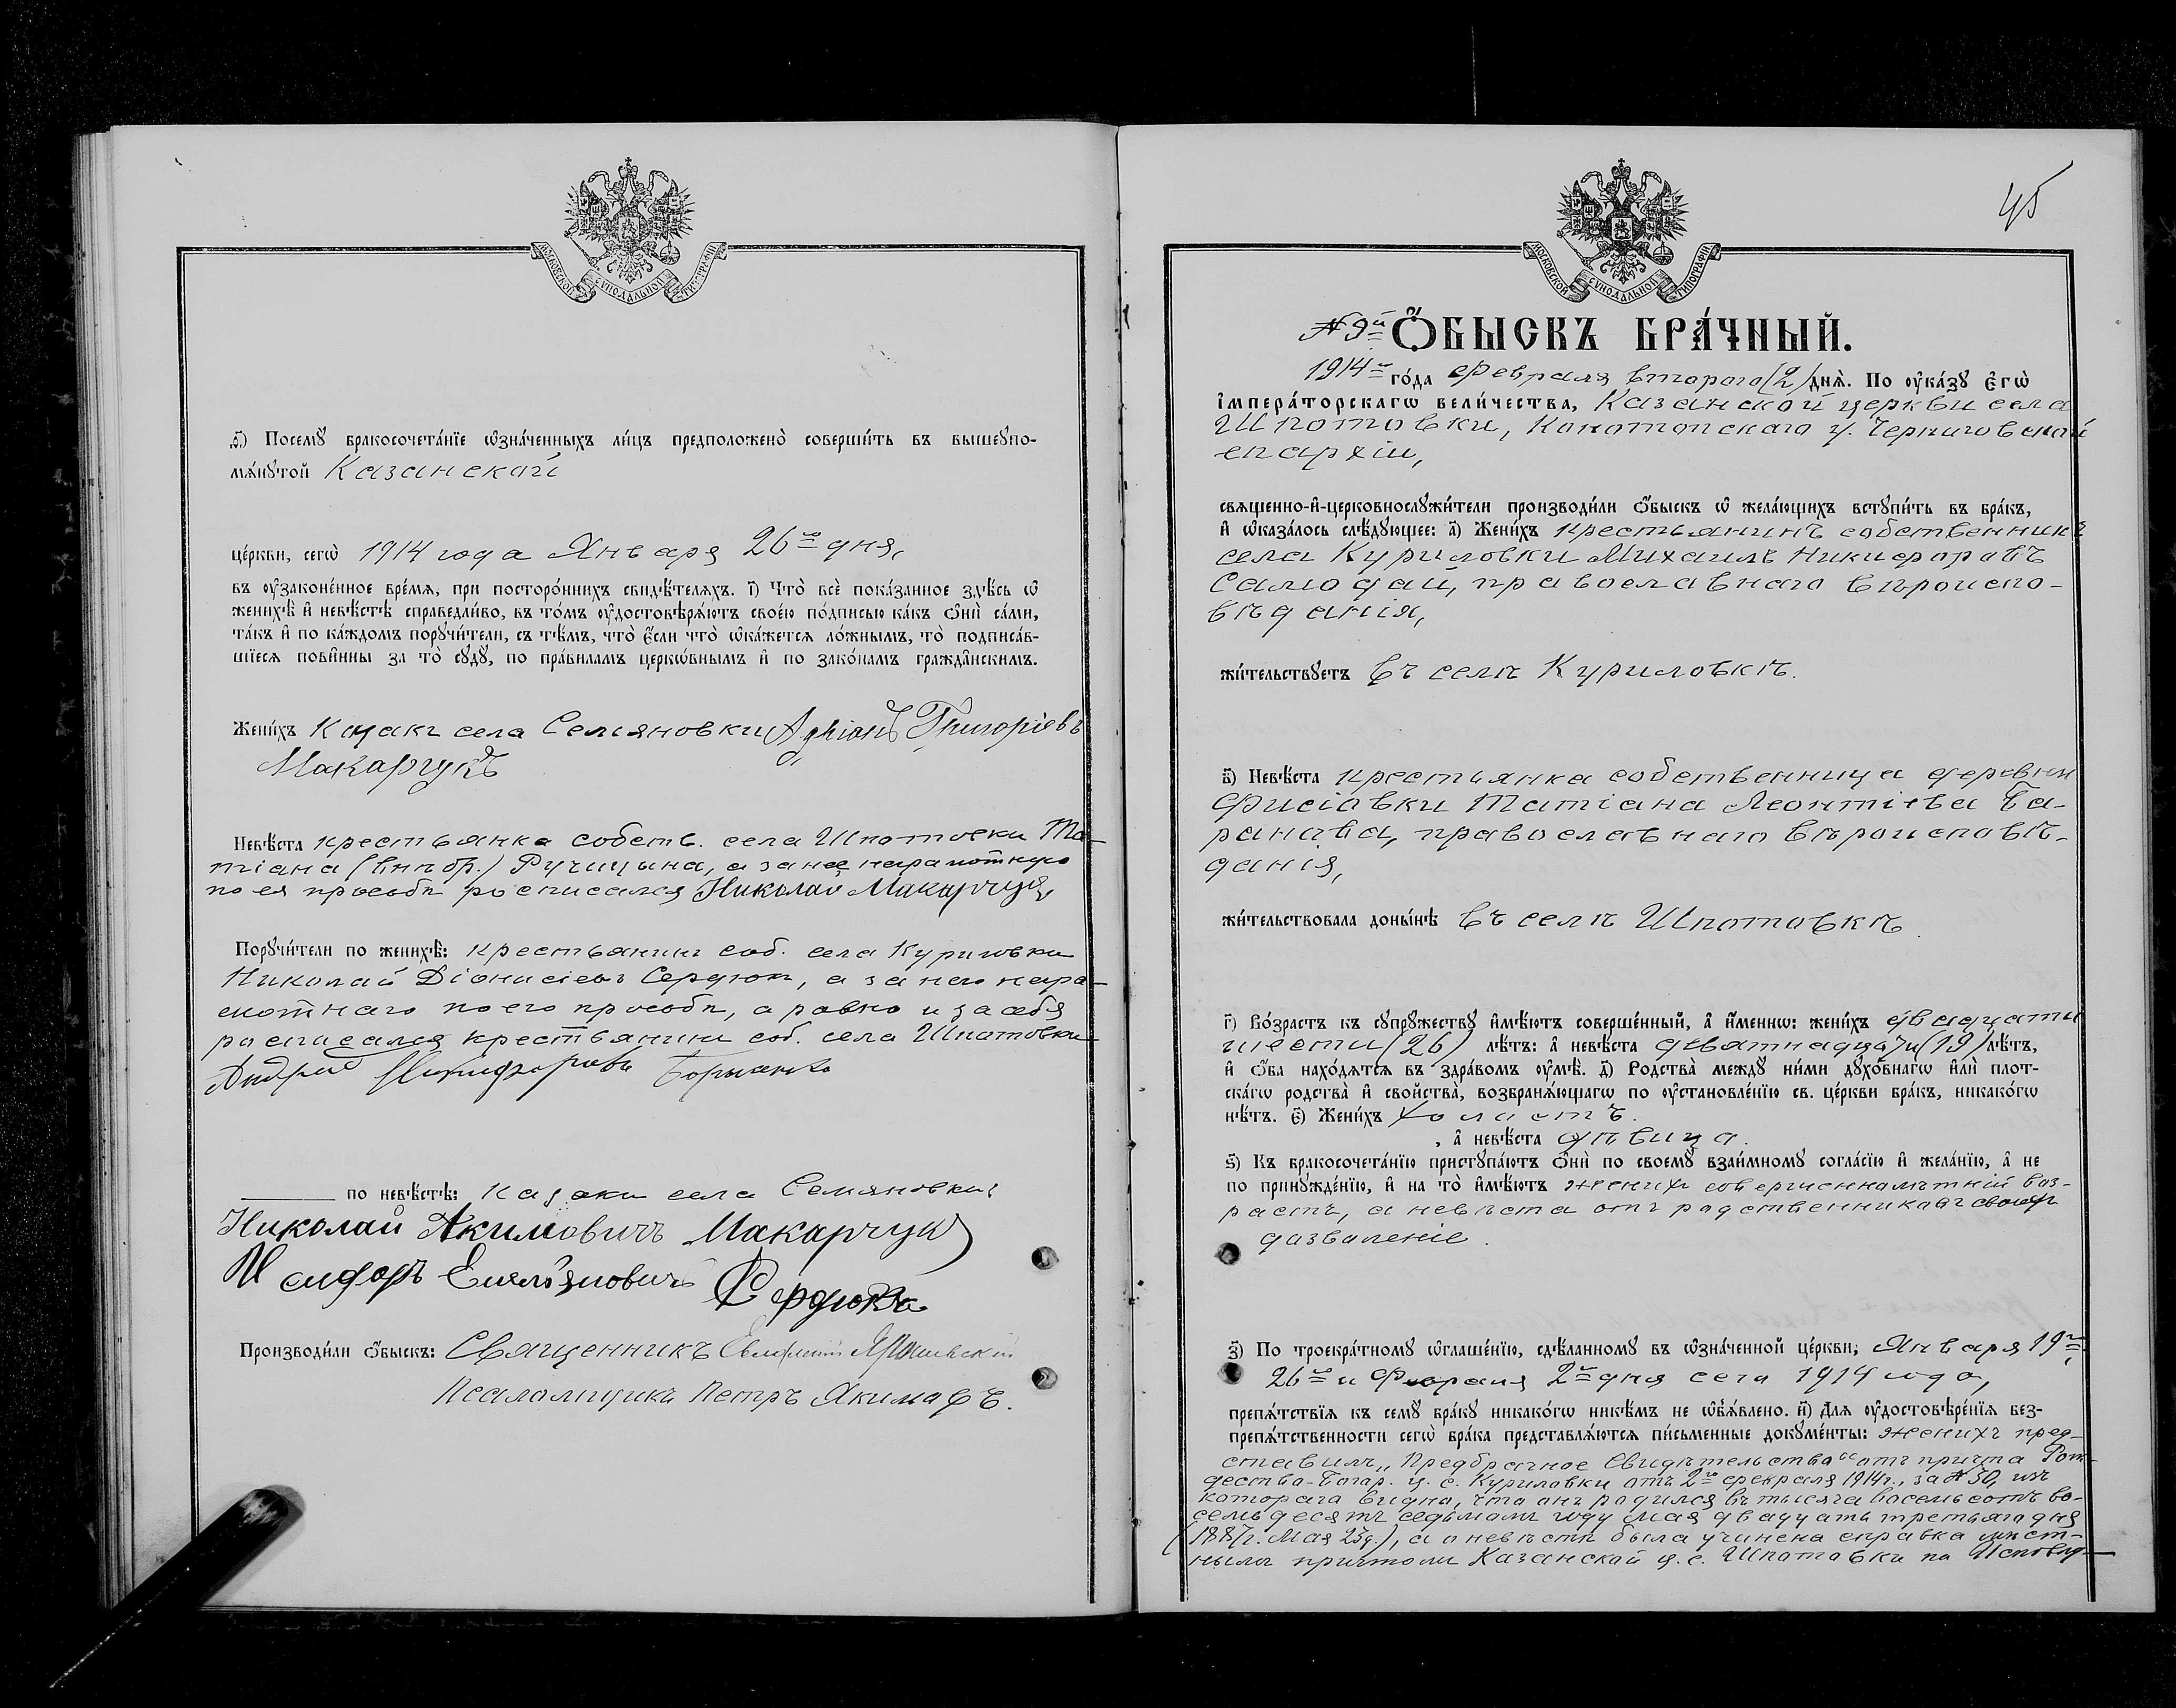 МОСКОВСКОЙ СѴНОДАЛЬНОЙ ТИПОГРАФІИ
ѳ҃) Посемꙋ̀ бракосочета́нїе ѡ҆зна́ченныхъ ли́цъ предположено̀ соверши́ть въ вышеꙋпо-
мѧ́нꙋтой Казанской
це́ркви, сегѡ̀ 1914 года Января 26го дня,
въ оу҆законе́нное вре́мѧ, при посторо́ннихъ свидѣ́телѧхъ. і҃) Что̀ всѐ пока́занное здѣ́сь ѡ҆
женихѣ̀ и҆ невѣ́стѣ справедли́во, въ то́мъ оу҆достовѣрѧ́ютъ свое́ю по́дписью ка́къ ѻ҆нѝ са́ми,
та́къ и҆ по ка́ждомъ порꙋчи́тели, съ тѣ́мъ, что̀ є҆́сли что̀ ѡ҆ка́жетсѧ ло́жнымъ, то̀ подписа́в-
шїесѧ пови́нны за то̀ сꙋдꙋ̀, по пра́виламъ церкѡ́внымъ и҆ по зако́намъ гражда̑нскимъ.
Жени́хъ Казакъ села Семяновки Адріанъ Григоріевъ
Макарчукъ
Невѣ́ста крестьянка собств. села Шпотовки Та-
тіана (внѣбр.) Ручицына, а за нее неграмотную
по ея просьбѣ росписался Николай Макарчукъ
Порꙋчи́тели по женихѣ̀: крестьянинъ соб. села Куриловки
Николай Діонисіевъ Сердюкъ, а за него негра-
мотнаго по его просьбѣ, а равно и за себя
росписался крестьянинъ соб. села Шпотовки
Андрей Никифоровъ
по невѣ́стѣ: Казаки села Семяновки:
Николай Акимовичъ Макарчукъ
Исидоръ Емельяновичъ Сердюкъ
Производи́ли ѻ҆́быскъ: Священникъ
Псаломщикъ Петръ Якимовъ.
45
МОСКОВСКОЙ СѴНОДАЛЬНОЙ ТИПОГРАФІИ
№ 9й Ѻ҆́БЫСКЪ БРА́ЧНЫЙ.
1914го го́да февраля второго (2) днѧ̀. По оу҆ка́зꙋ є҆гѡ̀
і҆мпера́торскагѡ вели́чества, Казанской церкви села
Шпотовки, Конотопскаго у. Черниговской
епархіи,
свѧще́нно-и҆-церковнослꙋжи́тели производи́ли ѻ҆́быскъ ѡ҆ жела́ющихъ встꙋпи́ть въ бра́къ,
и҆ ѡ҆каза́лось слѣ́дꙋющее: а҃) Жени́хъ крестьянинъ собственникъ
села Куриловки Михаилъ Никифоровъ
Самодай, православнаго вѣроиспо-
вѣданія,
жи́тельствꙋетъ въ селѣ Куриловкѣ.
в҃) Невѣ́ста крестьянка собственница деревни
Фисіовки Татіана Леонтіева Ба-
ранова, православнаго вѣроисповѣ-
данія,
жи́тельствовала доны́нѣ въ селѣ Шпотовкѣ.
г҃) Во́зрастъ къ сꙋпрꙋ́жествꙋ и҆мѣ́ютъ соверше́нный, а҆ и҆́меннѡ: жени́хъ двадцати
шести (26) лѣ́тъ: а҆ невѣ́ста девятнадцати (19) лѣ́тъ,
и҆ ѻ҆́ба нахо́дѧтсѧ въ здра́вомъ оу҆мѣ̀. д҃) Родства̀ междꙋ̀ ни́ми дꙋхо́внагѡ и҆лѝ плот-
ска́гѡ родства̀ и҆ сво́йства̀, возбранѧ́ющагѡ по оу҆становле́нїю св. це́ркви бра́къ, никако́гѡ
нѣ́тъ. є҃) Жени́хъ холостъ.
, а҆ невѣ́ста дѣвица.
ѕ҃) Къ бракосочета́нїю пристꙋпа́ютъ ѻ҆нѝ по своемꙋ̀ взаи́мномꙋ согла́сїю и҆ жела́нїю, а҆ не
по принꙋжде́нїю, и҆ на то̀ и҆мѣ́ютъ женихъ совершеннолѣтній воз-
растъ, а невѣста отъ родственниковъ своихъ
дозволеніе.
з҃) По троекра́тномꙋ ѡ҆глаше́нїю, сдѣ́ланномꙋ въ ѡ҆зна́ченной це́ркви, Января 19го,
26го и Февраля 2го дня сего 1914 года,
препѧ́тствїѧ къ семꙋ̀ бра́кꙋ никако́гѡ никѣ́мъ не ѡ҆б̾ѧ́влено. и҃) Длѧ̀ оу҆достовѣре́нїѧ без-
препѧ́тственности сегѡ̀ бра́ка представлѧ́ютсѧ пи́сьменные докꙋме́нты: женихъ пред-
ставилъ „Предбрачное Свидѣтельство“ отъ причта Рож-
дество-Богор. ц. с. Куриловки отъ 2го февраля 1914 г., за № 50, изъ
котораго видно, что онъ родился въ тысяча восемьсотъ во-
семьдесятъ седьмомъ году мая двадцать третьяго дня
(1887 г. Мая 23 д.), а о невѣстѣ была учинена справка мѣст-
нымъ причтомъ Казанской ц. с. Шпотовки по Исповѣд-